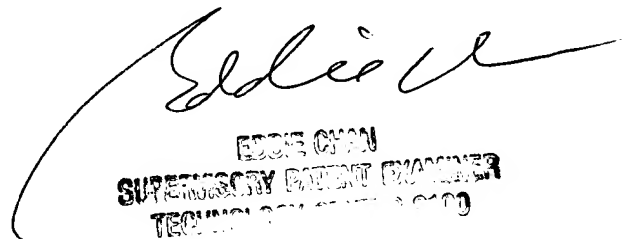 Eddie Ch
EDDIE CHAN
SUPERVISORY PATENT EXAMINER
TECHNOLOGY CENTER 2100